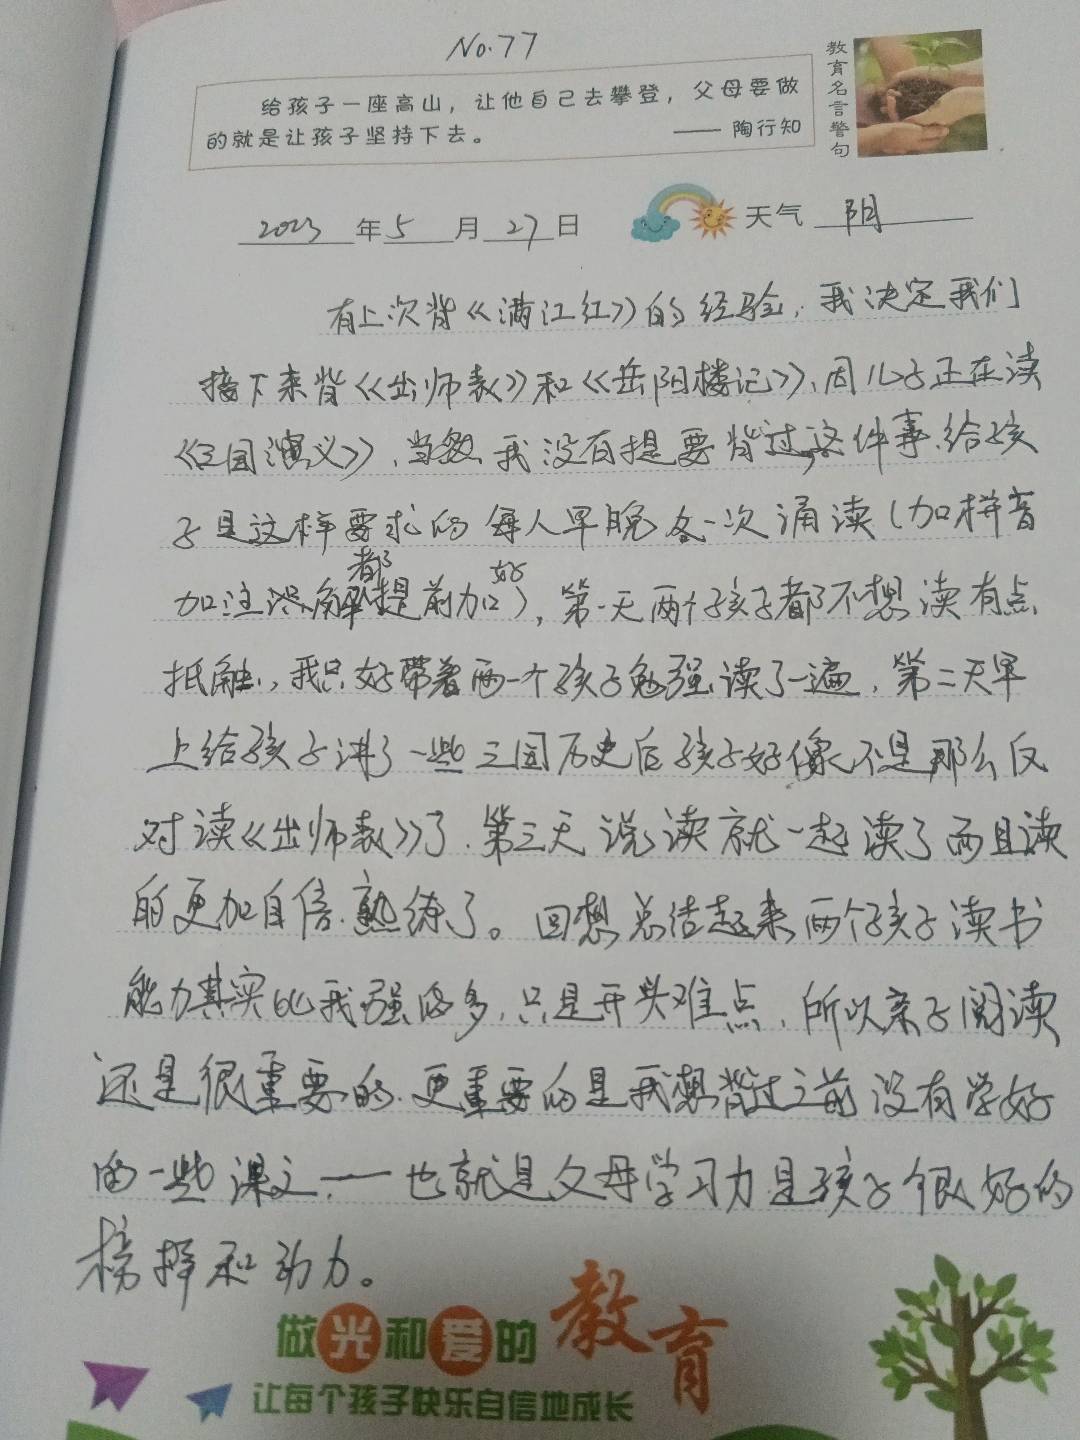 No.77
给孩子一座高山，让他自己去攀登，父母要做
的就是让孩子坚持下去。 —— 陶行知
教育名言警句
2023年5月27日 天气 阴
有上次背《满江红》的经验，我决定我们
接下来背《出师表》和《岳阳楼记》，因儿子正在读
《三国演义》，当然我没有提要背过这件事，给孩
子是这样要求的 每人早晚各一次诵读（加拼音
加注涩解都提前加好），第一天两个孩子都不想读有点
抵触，我只好带着两个孩子勉强读了一遍，第二天早
上给孩子讲了一些三国历史后孩子好像不是那么反
对读《出师表》了，第三天说读就一起读了而且读
的更加自信、熟练了。回想总结起来两个孩子读书
能力其实比我强的多，只是开头难点，所以亲子阅读
还是很重要的，更重要的是我想背过之前没有学好
的一些课文，——也就是父母学习力是孩子很好的
榜样和动力。
做光和爱的教育
让每个孩子快乐自信地成长